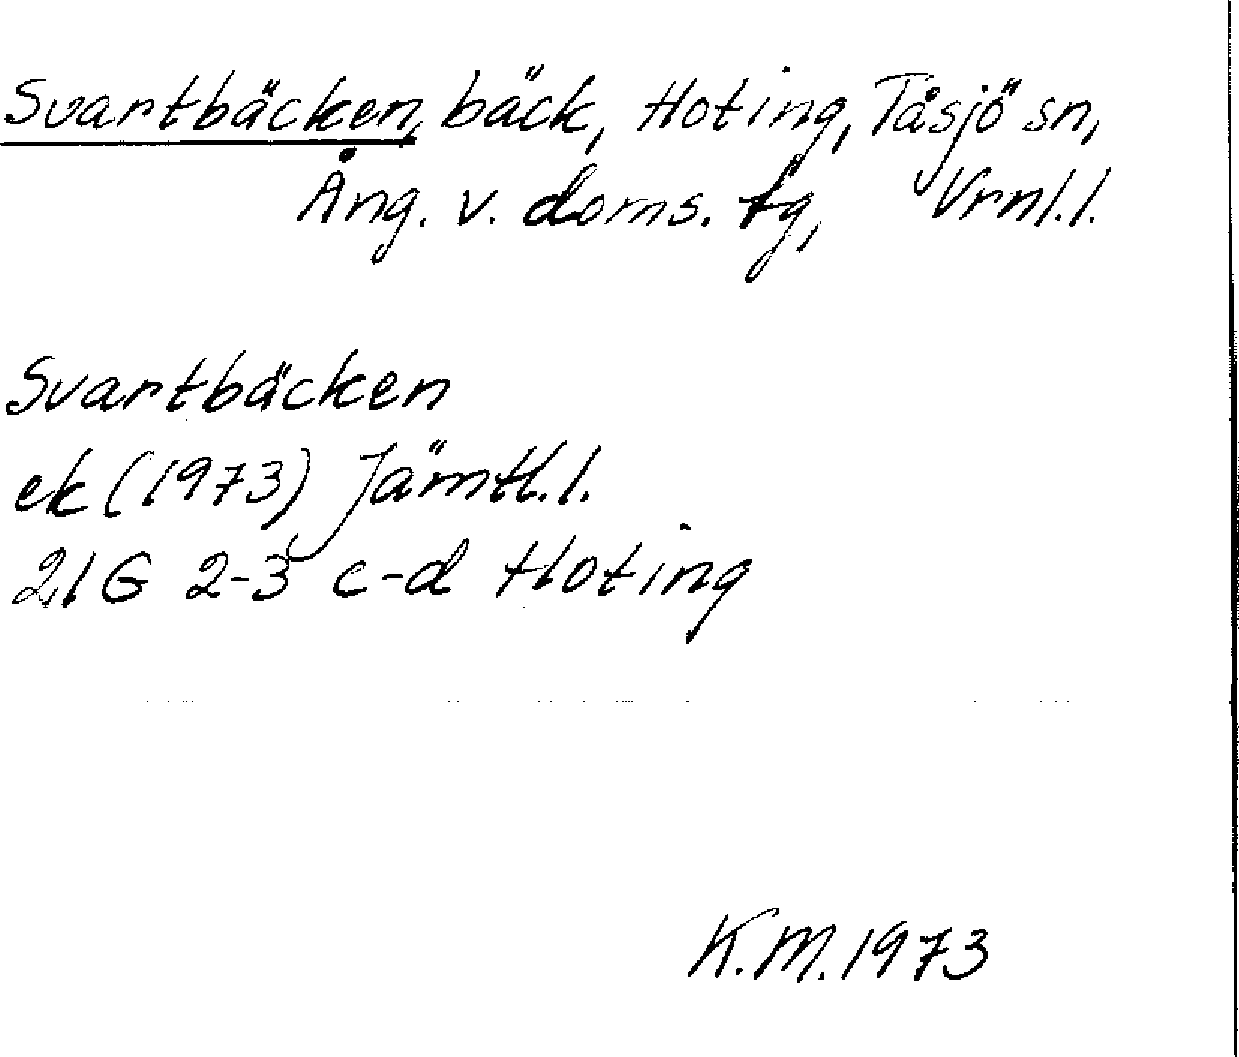 Svartbäcken, bäck, Hoting, Tåsjö sn,
Ång. v. doms. tg, Vrnl.l.
Svartbäcken
ek (1973) Jämtl.l.
21G 2-3 c-d Hoting
K.M. 1973